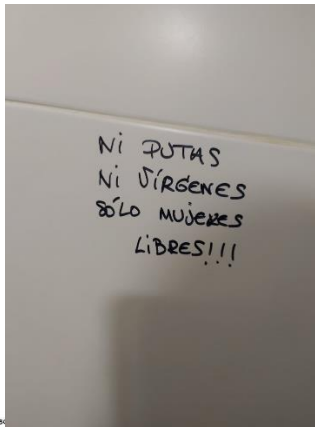 Ni PUTAS
Ni VÍRGENES
SÓLO MUJERES
LiBRES!!!